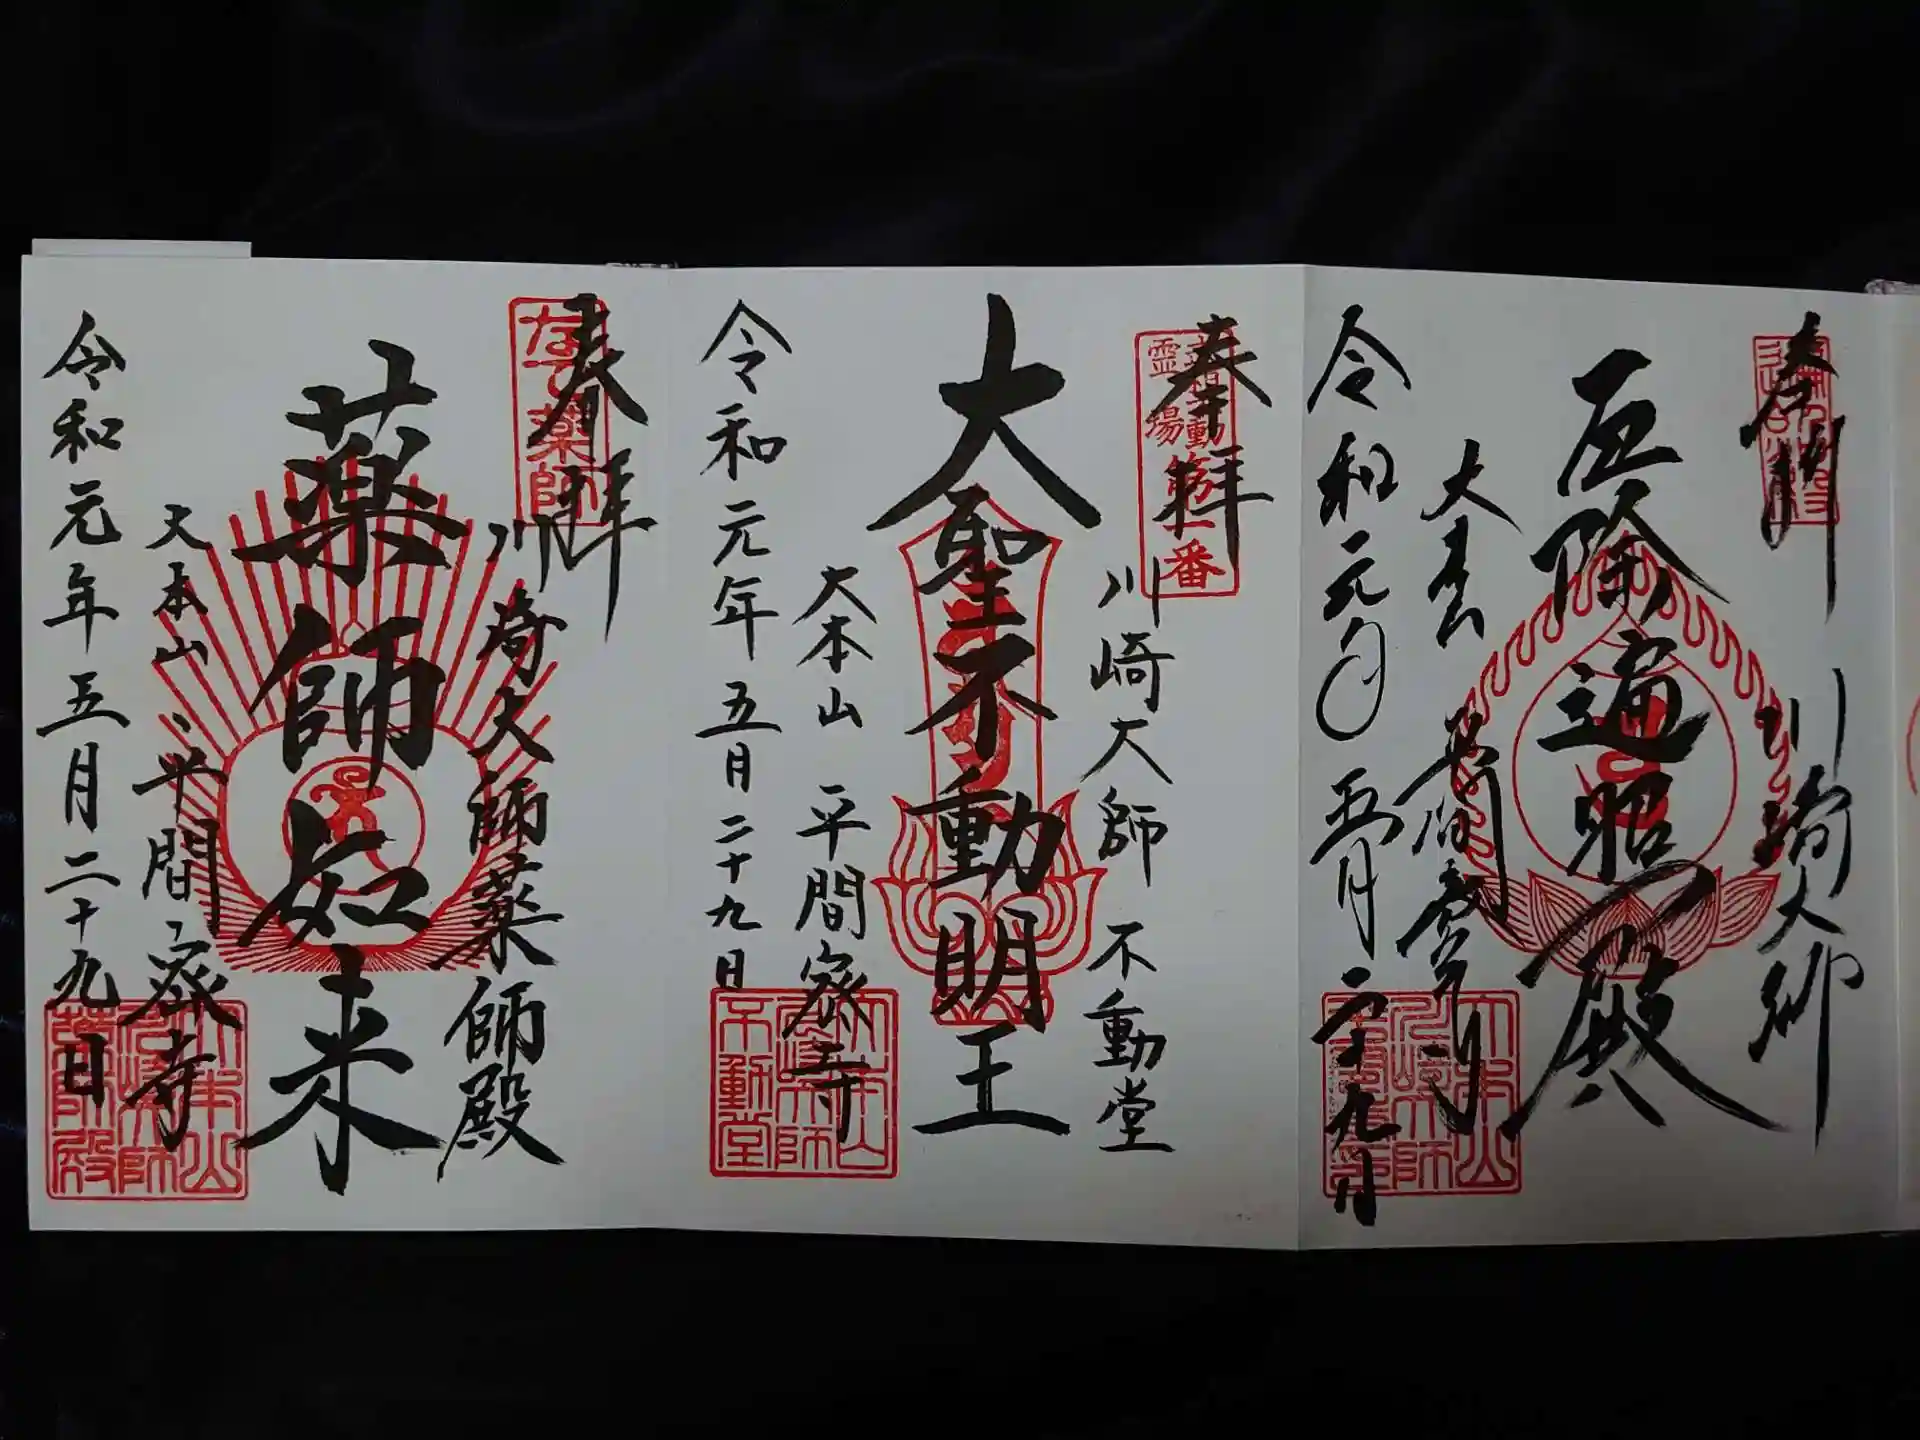 奉拝
川崎大師
厄除遍照殿
大本山
平間寺
令和元年
五月
二十九日
奉拝
霊場
第一番
川崎大師 不動堂
大聖不動明王
大本山 平間寺
令和元年 五月二十九日
大本山
川崎大師
不動堂
奉拝
なで薬師
川崎大師薬師殿
薬師如来
大本山 平間寺
令和元年五月二十九日
大本山
川崎大師
薬師殿